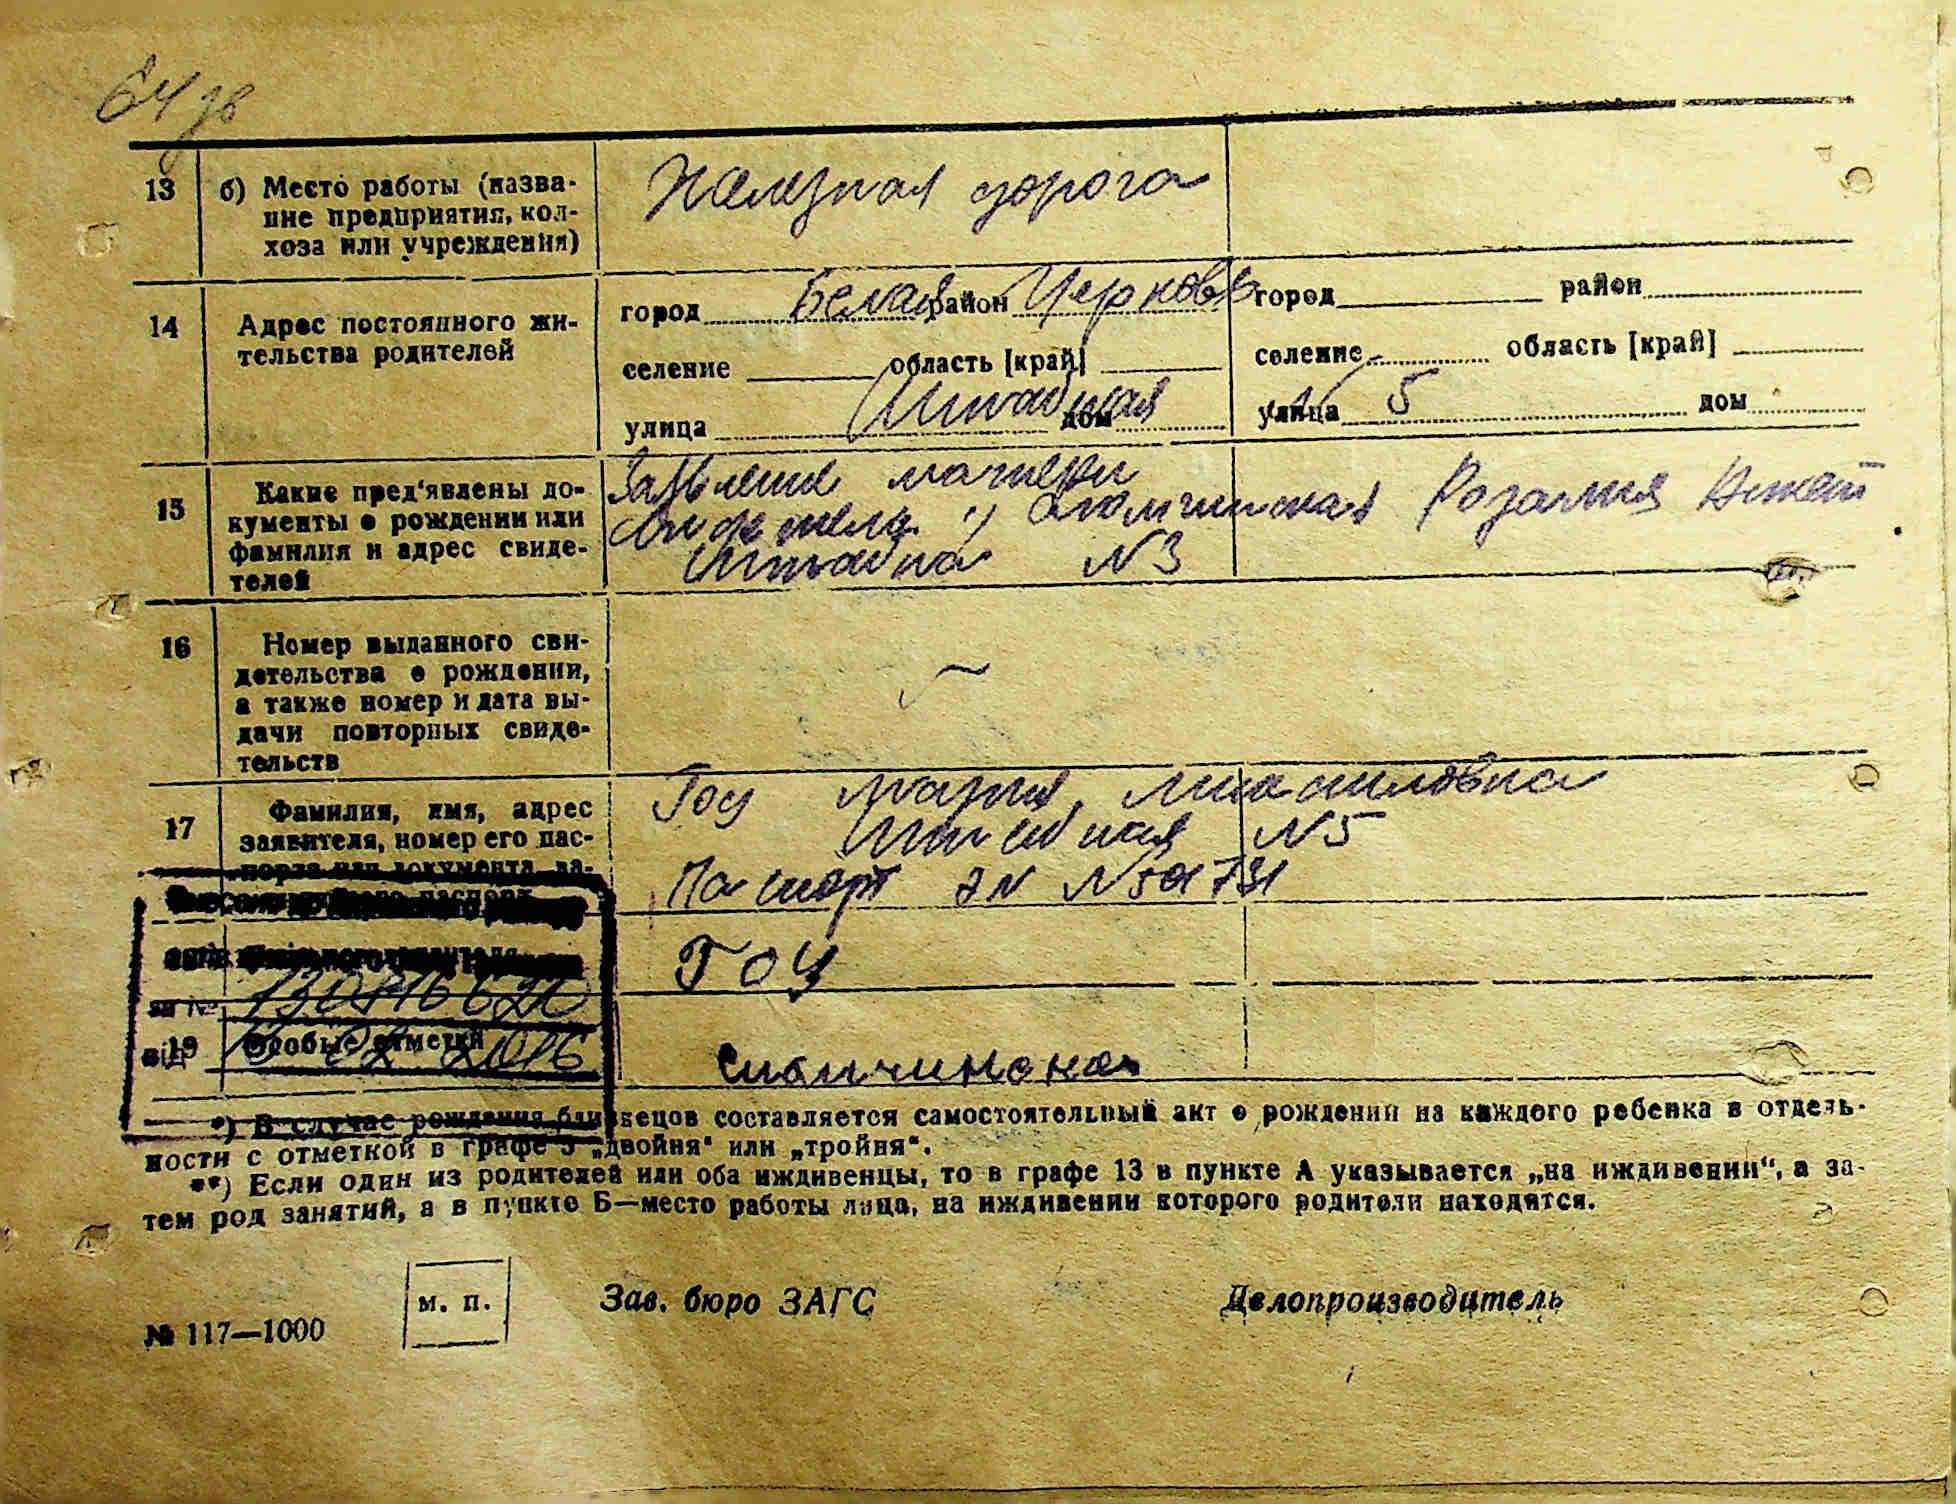 64
13 б) Место работы (назва-
ние предприятия, кол-
хоза или учреждения)
Железная дорога
14 Адрес постоянного жи-
тельства родителей
город Белая район Церковь город район
селение область [край] селение область [край]
улица Штабная дом улица № 5 дом
15 Какие пред'явлены до-
кументы о рождении или
фамилия и адрес свиде-
телей
Заявление матери
Розалия
Штабная №3
16 Номер выданного сви-
детельства о рождении,
а также номер и дата вы-
дачи повторных свиде-
тельств
17 Фамилия, имя, адрес
заявителя, номер его пас-
порта или документа, за-
паспорт
Гоц Мария Михайловна
Штабная №5
Паспорт №
Гоц
за №
19 Особые отметки
від 02 2016
*) В случае рождения близнецов составляется самостоятельный акт о рождении на каждого ребенка в отдель-
ности с отметкой в графе 5 „двойня“ или „тройня“.
**) Если один из родителей или оба иждивенцы, то в графе 13 в пункте А указывается „на иждивении“, а за-
тем род занятий, а в пункте Б—место работы лица, на иждивении которого родители находятся.
м. п. Зав. бюро ЗАГС Делопроизводитель
№ 117—1000